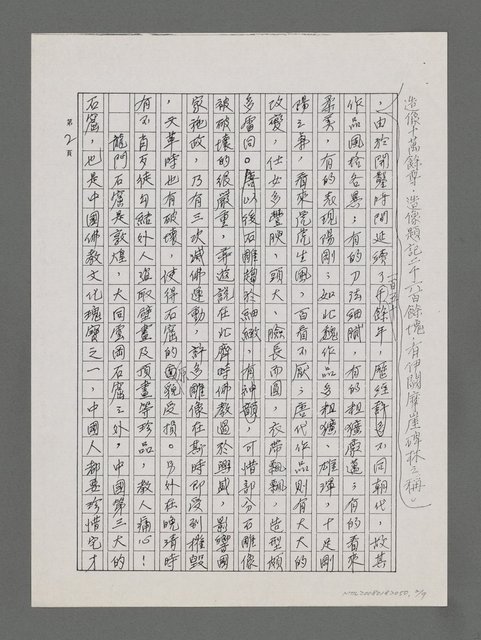 造像十萬餘尊，造像題記二千六百餘塊，有伊闕摩崖碑林之稱。
，由於開鑿時間延續了四百五十餘年，歷經許多不同朝代，故其
作品風格各異；有的刀法細膩，有的粗獷嚴謹；有的看來
柔美，有的表現陽剛；如北魏作品多粗獷、雄渾，十足剛
陽之氣，看來虎虎生風，百看不厭；唐代作品則有大大的
改變，仕女多豐腴，頭大、臉長而圓，衣帶飄飄，造型頗
多雷同。唐以後石雕趨於細緻，有神韻，可惜部分石雕像
被破壞的很嚴重，再說在北齊時佛教過於興盛，影響國
家施政，乃有三次滅佛運動，許多雕像在斯時即受到摧毀
，文革時也有破壞，使得石窟的原貌受損。另外在晚清時
有不肖歹徒勾結外人盜取壁畫及頂畫等珍品，教人痛心！
龍門石窟是敦煌，大同雲岡石窟之外，中國第三大的
石窟，也是中國佛教文化瑰寶之一，中國人都要珍惜它才
第2頁
NMTL20080182050, 2/9